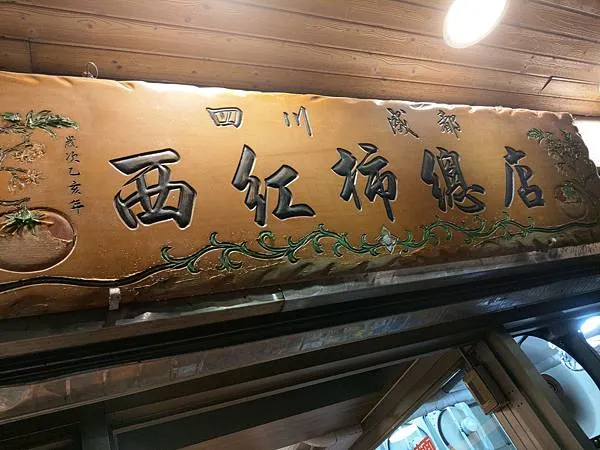 四川成都
西红柿總店
歲次乙亥年